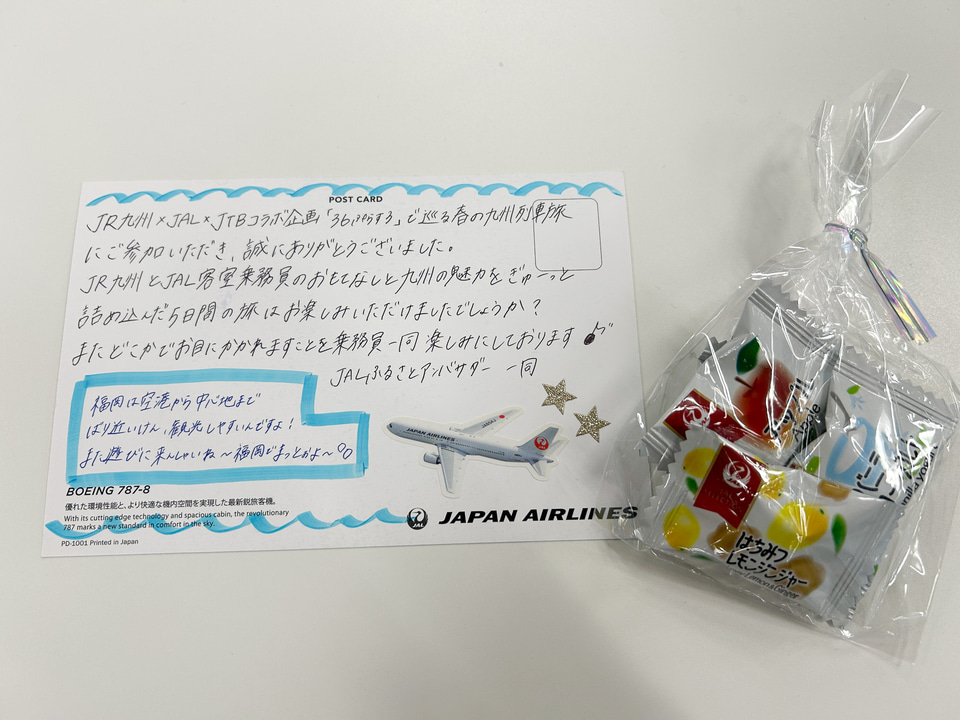 POST CARD
JR九州×JAL×JTBコラボ企画「36ぷらす3」で巡る春の九州列車旅
にご参加いただき、誠にありがとうございました。
JR九州とJAL客室乗務員のおもてなしと九州の魅力をぎゅーっと
詰め込んだ5日間の旅はお楽しみいただけましたでしょうか?
またどこかでお目にかかれますことを乗務員一同楽しみにしております♪
JALふるさとアンバサダー 一同
福岡は空港から中心地まで
ばり近いけん、観光しやすいんですよ!
また遊びに来んしゃいね〜福岡でまっとうよ〜
JAPAN AIRLINES
BOEING 787-8
優れた環境性能と、より快適な機内空間を実現した最新鋭旅客機。
With its cutting edge technology and spacious cabin, the revolutionary
787 marks a new standard in comfort in the sky.
PD-1001 Printed in Japan
JAL
JAPAN AIRLINES
はちみつ
レモンジンジャー
Lemon&Ginger